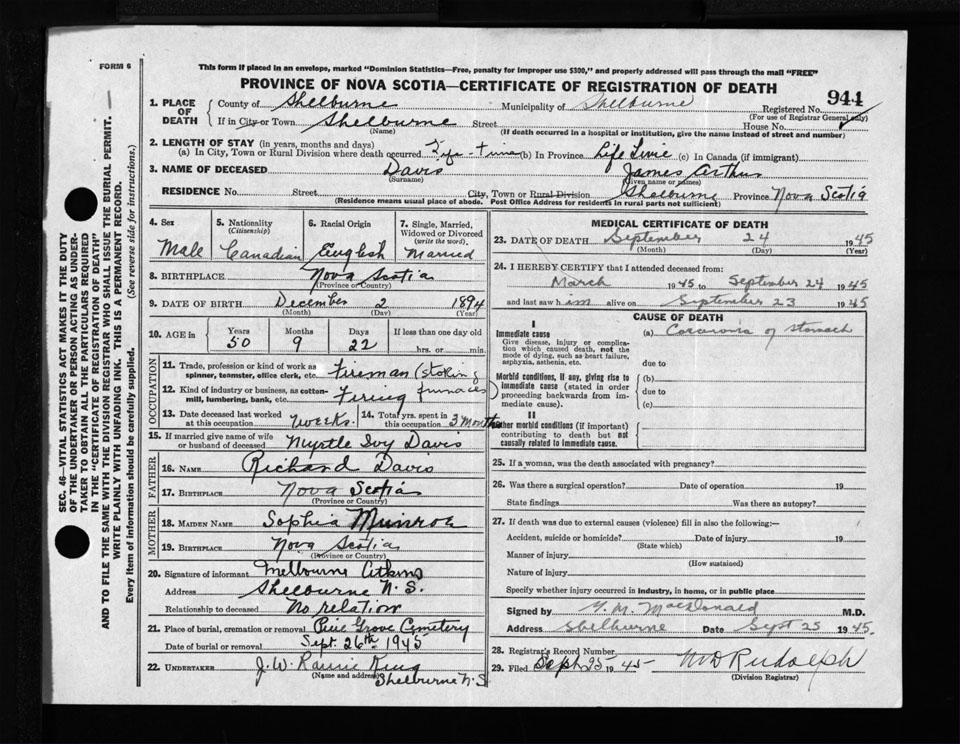 FORM 6
This form if placed in an envelope, marked "Dominion Statistics—Free, penalty for improper use $300," and properly addressed will pass through the mail "FREE"
PROVINCE OF NOVA SCOTIA—CERTIFICATE OF REGISTRATION OF DEATH
944
1. PLACE OF DEATH
County of Shelburne Municipality of Shelburne Registered No.
(For use of Registrar General only)
If in City or Town Shelburne Street House No.
(Name) (If death occurred in a hospital or institution, give the name instead of street and number)
2. LENGTH OF STAY (in years, months and days)
(a) In City, Town or Rural Division where death occurred Life-time (b) In Province Life Time (c) In Canada (if immigrant)
3. NAME OF DECEASED Davis James Arthur
(Surname) (Given name or names)
RESIDENCE No. Street City, Town or Rural Division Shelburne Province Nova Scotia
(Residence means usual place of abode. Post Office Address for residents in rural parts not sufficient)
4. Sex
Male
5. Nationality
(Citizenship)
Canadian
6. Racial Origin
English
7. Single, Married, Widowed or Divorced
(write the word)
Married
8. BIRTHPLACE Nova Scotia
(Province or Country)
9. DATE OF BIRTH December 2 1894
(Month) (Day) (Year)
10. AGE in
Years Months Days If less than one day old
50 9 22 hrs. or min.
OCCUPATION
11. Trade, profession or kind of work as spinner, teamster, office clerk, etc. Fireman (stoking
12. Kind of industry or business, as cotton-mill, lumbering, bank, etc. Firing furnaces)
13. Date deceased last worked at this occupation weeks.
14. Total yrs. spent in this occupation 3 months
15. If married give name of wife or husband of deceased Myrtle Ivy Davis
FATHER
16. NAME Richard Davis
17. BIRTHPLACE Nova Scotia
(Province or Country)
MOTHER
18. MAIDEN NAME Sophia Munroe
19. BIRTHPLACE Nova Scotia
(Province or Country)
20. Signature of informant Melbourne Atkins
Address Shelburne N.S.
Relationship to deceased No relation
21. Place of burial, cremation or removal Pine Grove Cemetery
Date of burial or removal Sept. 26th 1945
22. UNDERTAKER J. W. King
(Name and address) Shelburne N.S.
MEDICAL CERTIFICATE OF DEATH
23. DATE OF DEATH September 24 1945
(Month) (Day) (Year)
24. I HEREBY CERTIFY that I attended deceased from:
March 1945 to September 24 1945
and last saw him alive on September 23 1945
CAUSE OF DEATH
I
Immediate cause
Give disease, injury or complication which caused death, not the mode of dying, such as heart failure, asphyxia, asthenia, etc.
(a) Carcinoma of stomach
due to
Morbid conditions, if any, giving rise to immediate cause (stated in order proceeding backwards from immediate cause).
(b)
due to
(c)
II
Other morbid conditions (if important) contributing to death but not causally related to immediate cause.
25. If a woman, was the death associated with pregnancy?
26. Was there a surgical operation? Date of operation 19
State findings Was there an autopsy?
27. If death was due to external causes (violence) fill in also the following:—
Accident, suicide or homicide? Date of injury 19
(State which)
Manner of injury
(How sustained)
Nature of injury
Specify whether injury occurred in industry, in home, or in public place
Signed by MacDonald M.D.
Address Shelburne Date Sept 25 1945.
28. Registrar's Record Number
29. Filed Sept 25 1945 Rudolph
(Division Registrar)
SEC. 46—VITAL STATISTICS ACT MAKES IT THE DUTY
OF THE UNDERTAKER OR PERSON ACTING AS UNDER-
TAKER TO OBTAIN ALL THE PARTICULARS REQUIRED
IN THE "CERTIFICATE OF REGISTRATION OF DEATH"
AND TO FILE THE SAME WITH THE DIVISION REGISTRAR WHO SHALL ISSUE THE BURIAL PERMIT.
WRITE PLAINLY WITH UNFADING INK. THIS IS A PERMANENT RECORD.
Every item of information should be carefully supplied. (See reverse side for instructions.)